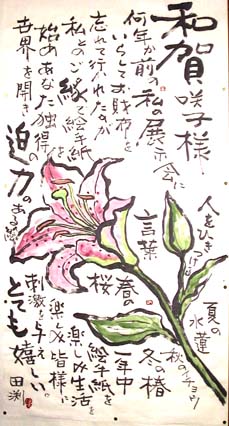 和賀咲子様
何年か前の私の展示会に
いらしてお財布を
忘れて行かれたのが
私とのご縁絵手紙を
始めあなた独得の
世界を開き
迫力のある絵
言葉
人をひきつける
春の桜
夏の水蓮
秋のイチョウ
冬の椿
一年中
絵手紙を
楽しみ生活を
楽しみ皆様に
刺激を与え
とても嬉しい。
田渕